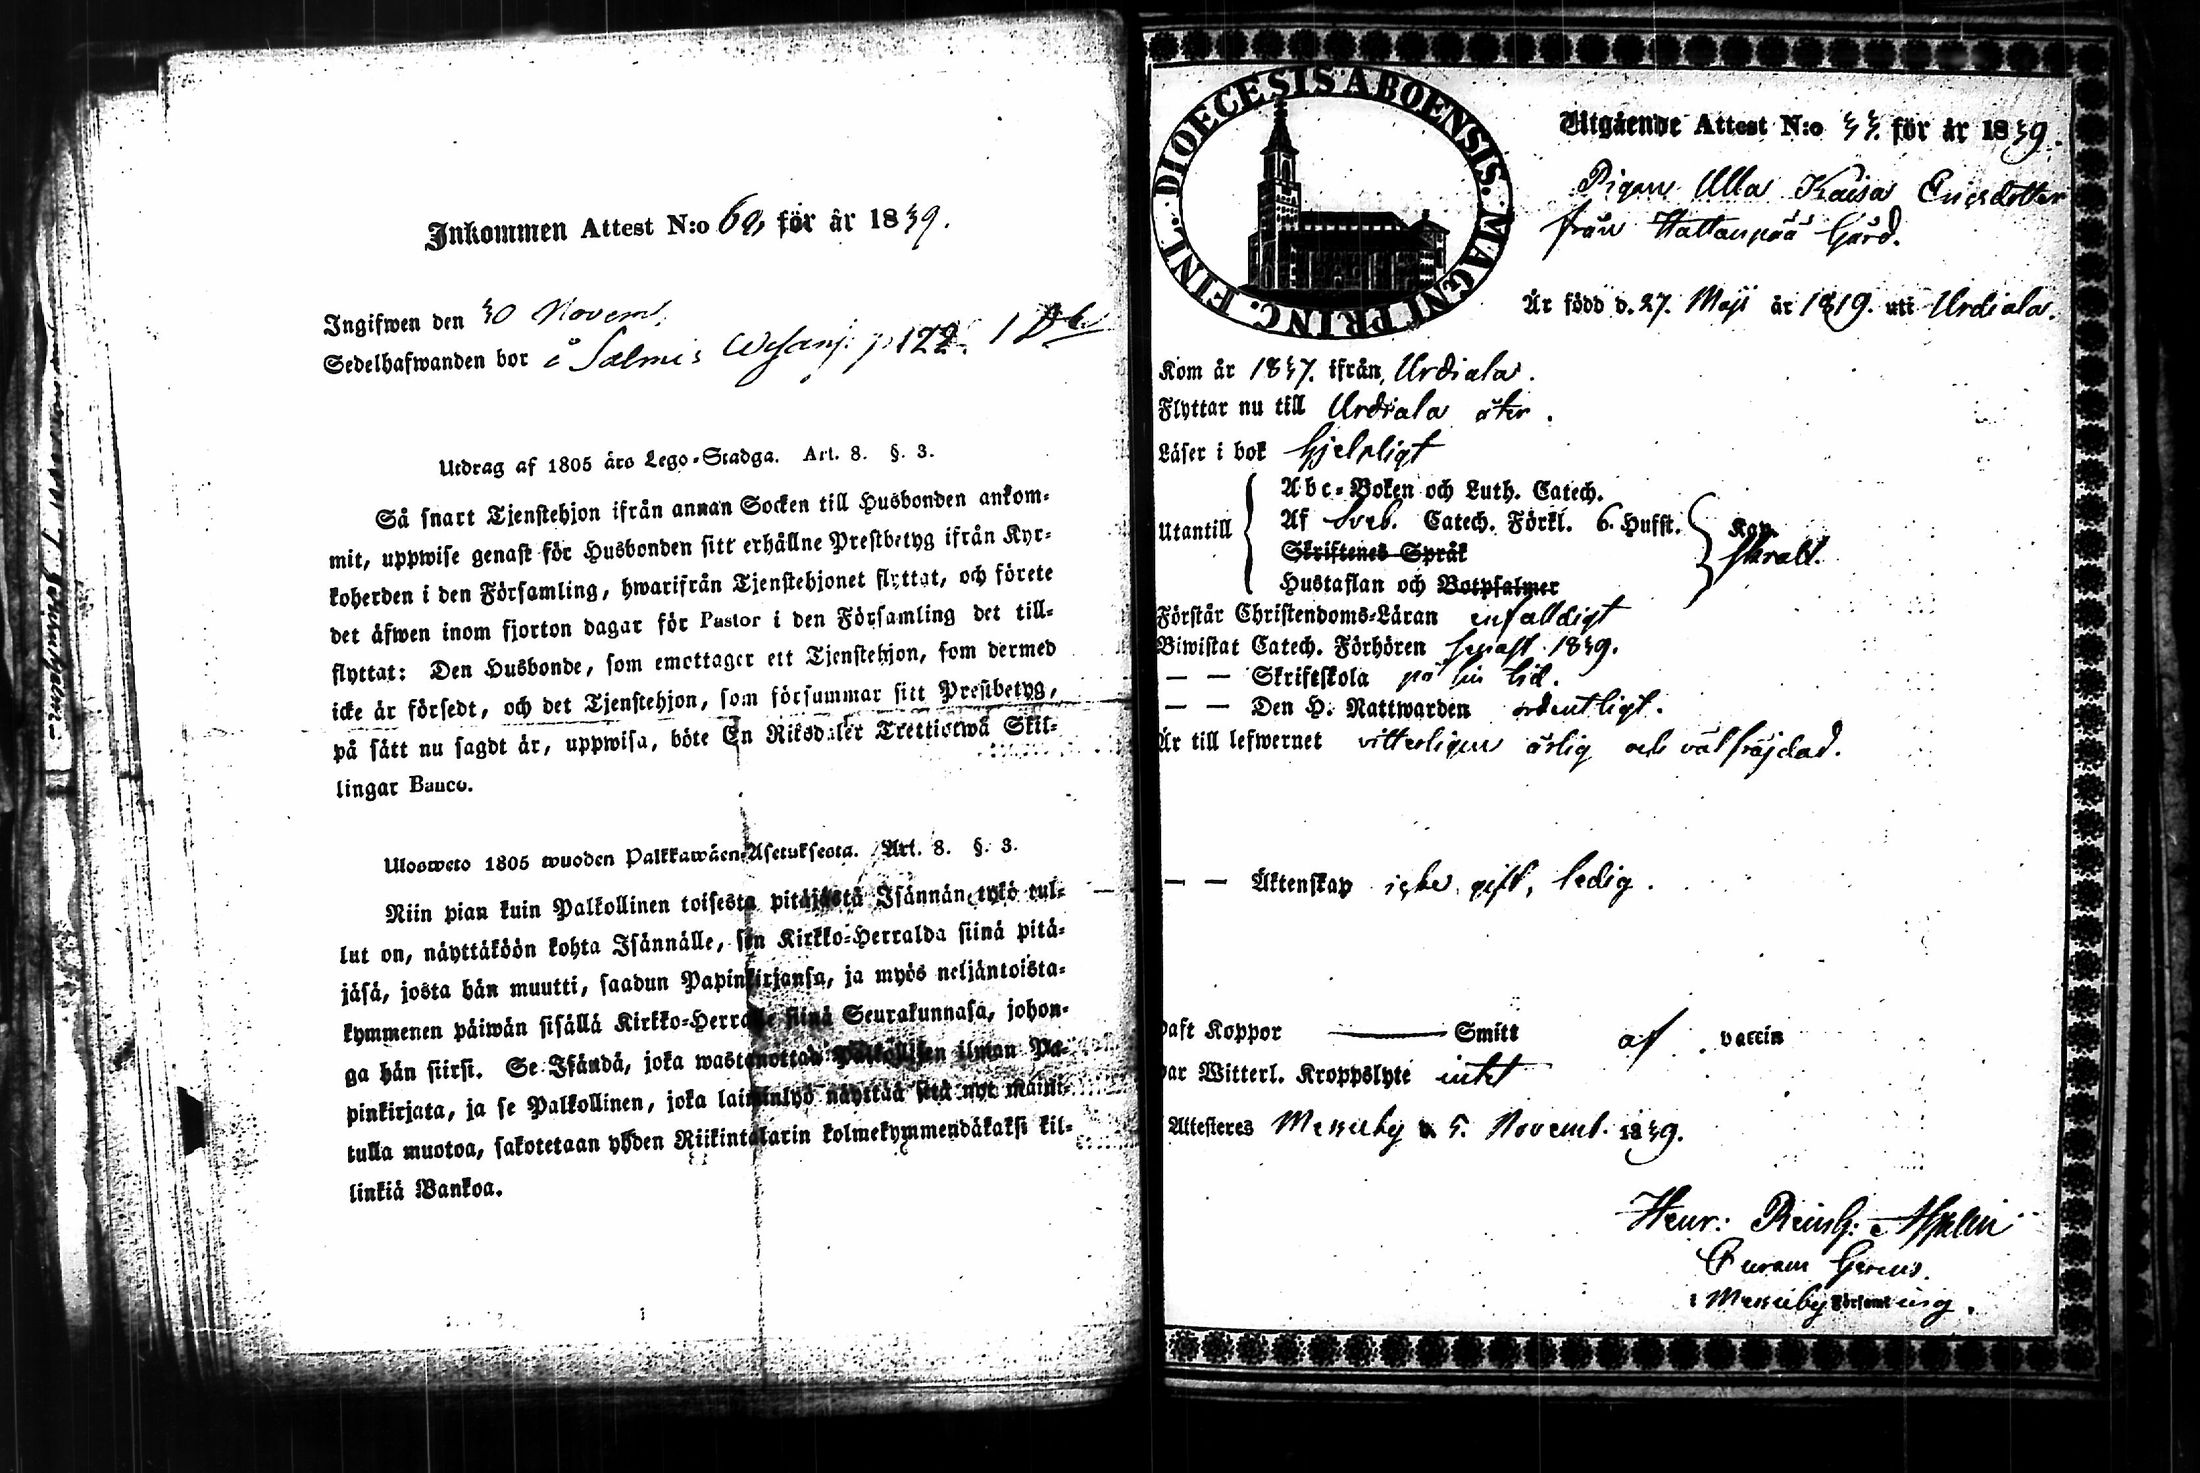 Inkommen Attest N:o 60, för år 1839.
Ingifwen den 30 Novem.
Sedelhafwanden bor å Salmis p 122.
Utdrag af 1805 års Lego-Stadga. Art. 8. §. 3.
Så snart Tjenstehjon ifrån annan Socken till Husbonden ankom-
mit, uppwise genast för Husbonden sitt erhållne Prestbetyg ifrån Kyr-
koherden i den Församling, hwarifrån Tjenstehjonet flyttat, och förete
det äfwen inom fjorton dagar för Pastor i den Församling det till-
flyttat: Den Husbonde, som emottager ett Tjenstehjon, som dermed
icke är försedt, och det Tjenstehjon, som försummar sitt Prestbetyg,
på sätt nu sagdt är, uppwisa, böte En Riksdaler Trettiotwå Skil-
lingar Banco.
Ulosweto 1805 wuoden Palkkawäen-Asetuksesta. Art. 8. §. 3.
Niin pian kuin Palkollinen toisesta pitäjästä Isännän tykö tul-
lut on, näyttäköön kohta Isännälle, sen Kirkko-Herralda siinä pitä-
jäsä, josta hän muutti, saadun Papinkirjansa, ja myös neljäntoista-
kymmenen päiwän sisällä Kirkko-Herralle siinä Seurakunnasa, johon-
ga hän siirsi. Se Isändä, joka wastanottaa Palkollisen ilman Pa-
pinkirjata, ja se Palkollinen, joka laiminlyö näyttää sitä nyt maini-
tulla muotoa, sakotetaan yhden Riikintalarin kolmekymmendäkaksi kil-
linkiä Bankoa.
DIOECESIS ABOENSIS. MAGNI PRINC. FINL.
Utgående Attest N:o 33. för år 1839.
Pigan Ulla Kaisa Ericsdotter
från Hattanpää Gård.
Är född d. 27. Maji år 1819. uti Urdiala.
Kom år 1837. ifrån Urdiala.
Flyttar nu till Urdiala åter.
Läser i bok hjelpligt
Abc-Boken och Luth. Catech.
Utantill Af Sveb. Catech. Förkl. 6. Hufst. Kap.
Skriftenes Språk svalt.
Hustaflan och Botpsalmer
Förstår Christendoms-Läran enfaldigt
Biwistat Catech. Förhören senast 1839.
— — Skriftskola på sin tid.
— — Den H. Nattwarden ordentligt.
Är till lefwernet vitterligen ärlig och välfräjdad.
— — Äktenskap icke gift, ledig.
haft Koppor — Smitt af vaccin
har Witterl. Kroppslyte intet
Attesteras Messuby d. 5. Novemb. 1839.
Henr: Reinh:
Curam Gerens.
i Messuby Församling.